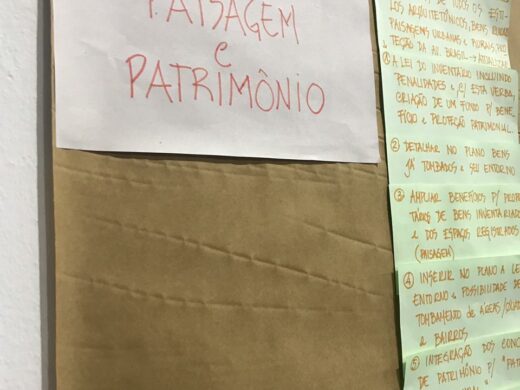 PAISAGEM
e
PATRIMÔNIO
DE TODOS OS ESTI-
LOS ARQUITETÔNICOS, BENS
PAISAGENS URBANAS e PLURAIS, PRO
TEÇÃO DA AV. BRASIL → ATUALIZAR
① A LEI DO INVENTÁRIO INCLUINDO
PENALIDADES e C/ ESTA VERBA,
CRIAÇÃO DE UM FUNDO P/ BENE
FÍCIO e PROTEÇÃO PATRIMONIAL.
② DETALHAR NO PLANO BENS
JÁ TOMBADOS e SEU ENTORNO
③ AMPLIAR BENEFÍCIOS P/ PROPR
TÁRIOS DE BENS INVENTARIAD
e DOS ESPAÇOS REGISTRADOS
(PAISAGEM)
④ INSERIR NO PLANO A LE
ENTORNO e POSSIBILIDADE DE
TOMBAMENTO de ÁREAS
e BAIRROS
⑤ INTEGRAÇÃO DOS CONC
DE PATRIMÔNIO P/ "PAT